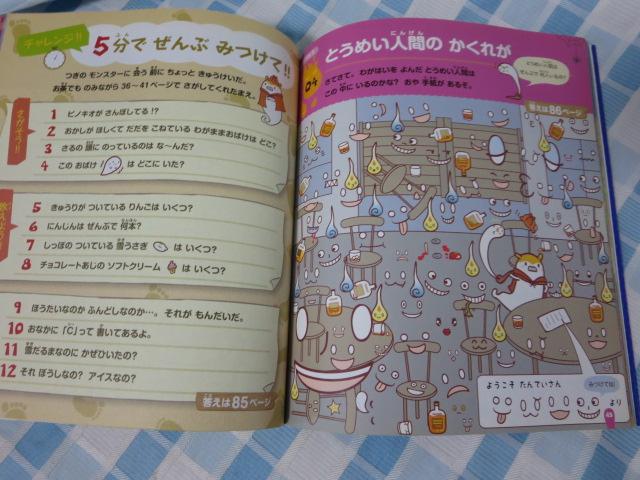 チャレンジ!!
5分で ぜんぶ みつけて!!
つぎの モンスターに 会う 前に ちょっと きゅうけいだ。
お茶でも のみながら 36〜41ページで さがしてくれたまえ。
さがそう!!
1 ピノキオが さんぽしてる!?
2 おかしが ほしくて ダダを こねている わがままおばけは どこ?
3 さるの 頭に のっているのは な〜んだ?
4 この おばけ は どこに いた?
数えよう!!
5 きゅうりが ついている りんごは いくつ?
6 にんじんは ぜんぶで 何本?
7 しっぽの ついている 雪うさぎ は いくつ?
8 チョコレートあじの ソフトクリーム は いくつ?
9 ほうたいなのか ふんどしなのか…。 それが もんだいだ。
10 おなかに 「C」って 書いてあるよ。
11 雪だるまなのに かぜひいたの?
12 それ ぼうしなの? アイスなの?
答えは85ページ
とうめい人間の かくれが
さてさて。 わがはいを よんだ とうめい人間は
この 中に いるのかな? おや 手紙が あるぞ。
とうめい人間は
答えは86ページ
ようこそ たんていさん
みつけてね!
より
45